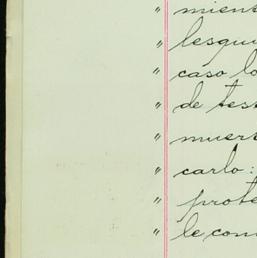 " mient
" lesqui
" caso lo
" de tes
" muert
" carlo:
" prote
" le con